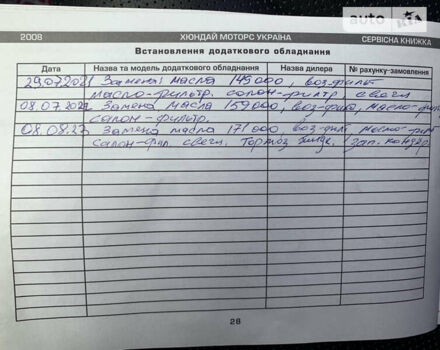 auto RIA
2008 ХЮНДАЙ МОТОРС УКРАЇНА СЕРВІСНА КНИЖКА
Встановлення додаткового обладнання
Дата Назва та модель додаткового обладнання Назва дилера № рахунку-замовлення
29.07.2021 Замена масла 145000, воз-фильт
масло-фильтр. салон-фильтр свечи
08.07.2022 Замена масла 159000, воз-фил, масло-фил
салон-фильтр.
08.08.23 Замена масла 171000, воз-фил, масло-фил
салон-фил свечи. Тормоз зап. кондер
28